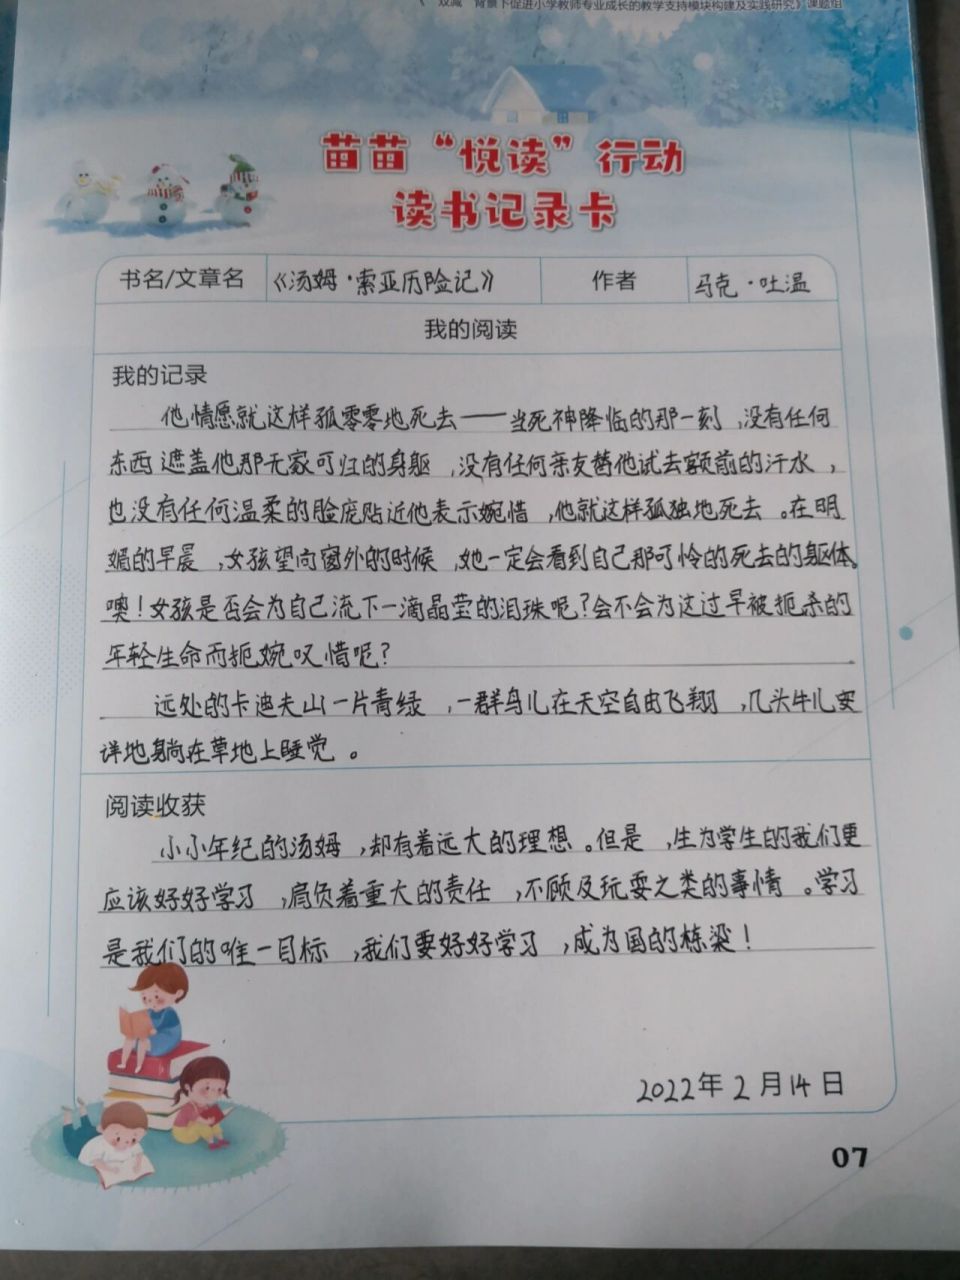 《“双减”背景下促进小学教师专业成长的教学支持模块构建及实践研究》课题组
苗苗“悦读”行动
读书记录卡
书名/文章名 《汤姆·索亚历险记》 作者 马克·吐温
我的阅读
我的记录
他情愿就这样孤零零地死去——当死神降临的那一刻,没有任何
东西遮盖他那无家可归的身躯,没有任何亲友替他试去额前的汗水,
也没有任何温柔的脸庞贴近他表示婉惜,他就这样孤独地死去。在明
媚的早晨,女孩望向窗外的时候,她一定会看到自己那可怜的死去的躯体。
噢!女孩是否会为自己流下一滴晶莹的泪珠呢?会不会为这过早被扼杀的
年轻生命而扼婉叹惜呢?
远处的卡迪夫山一片青绿,一群鸟儿在天空自由飞翔,几头牛儿安
详地躺在草地上睡觉。
阅读收获
小小年纪的汤姆,却有着远大的理想。但是,生为学生的我们更
应该好好学习,肩负着重大的责任,不顾及玩耍之类的事情。学习
是我们的唯一目标,我们要好好学习,成为国的栋梁!
2022年2月14日
07